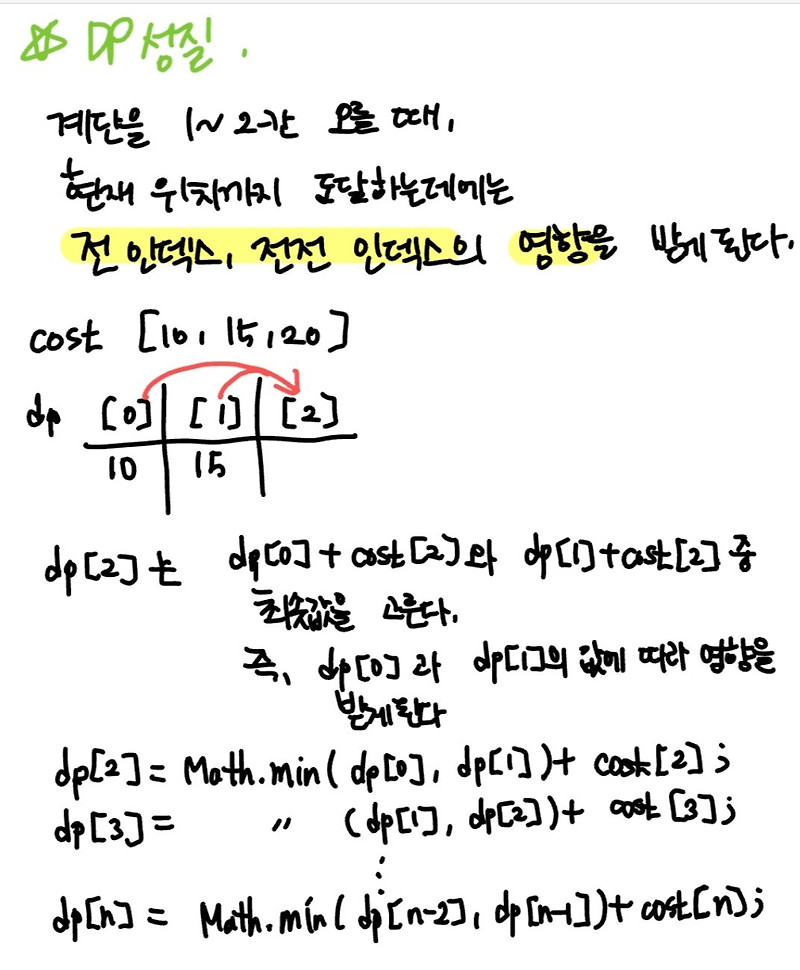 ☆ DP 성질.
계단을 1~2칸 오를 때,
현재 위치까지 도달하는데에는
전 인덱스, 전전 인덱스의 영향을 받게 된다.
cost [10, 15, 20]
dp [0] [1] [2]
10 15
dp[2]는 dp[0]+cost[2]와 dp[1]+cost[2] 중
최솟값을 고른다.
즉, dp[0]과 dp[1]의 값에 따라 영향을
받게 된다
dp[2] = Math.min(dp[0], dp[1])+ cost[2];
dp[3] = 〃 (dp[1], dp[2])+ cost[3];
⋮
dp[n] = Math.min(dp[n-2], dp[n-1])+cost[n];